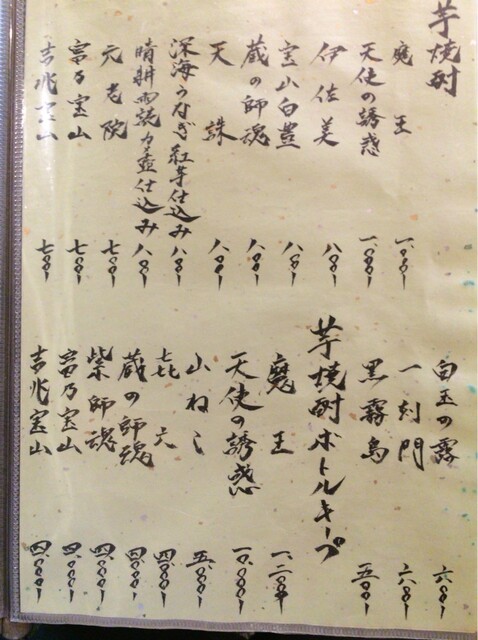 芋焼酎
魔王 一、〇〇〇
天使の誘惑 一、〇〇〇
伊佐美 八〇〇
宝山白豊 八〇〇
蔵の師魂 八〇〇
天誅 八〇〇
深海うなぎ紅芋仕込み 八〇〇
晴耕雨読カメ壺仕込み 八〇〇
元老院 七〇〇
富乃宝山 七〇〇
吉兆宝山 七〇〇
白玉の露 六〇〇
一刻門 六〇〇
黒霧島 五〇〇
芋焼酎ボトルキープ
魔王
天使の誘惑 一〇、〇〇〇
山ねこ 五、〇〇〇
㐂六 四、〇〇〇
蔵の師魂 四、〇〇〇
紫師魂 四、〇〇〇
富乃宝山 四、〇〇〇
吉兆宝山 四、〇〇〇